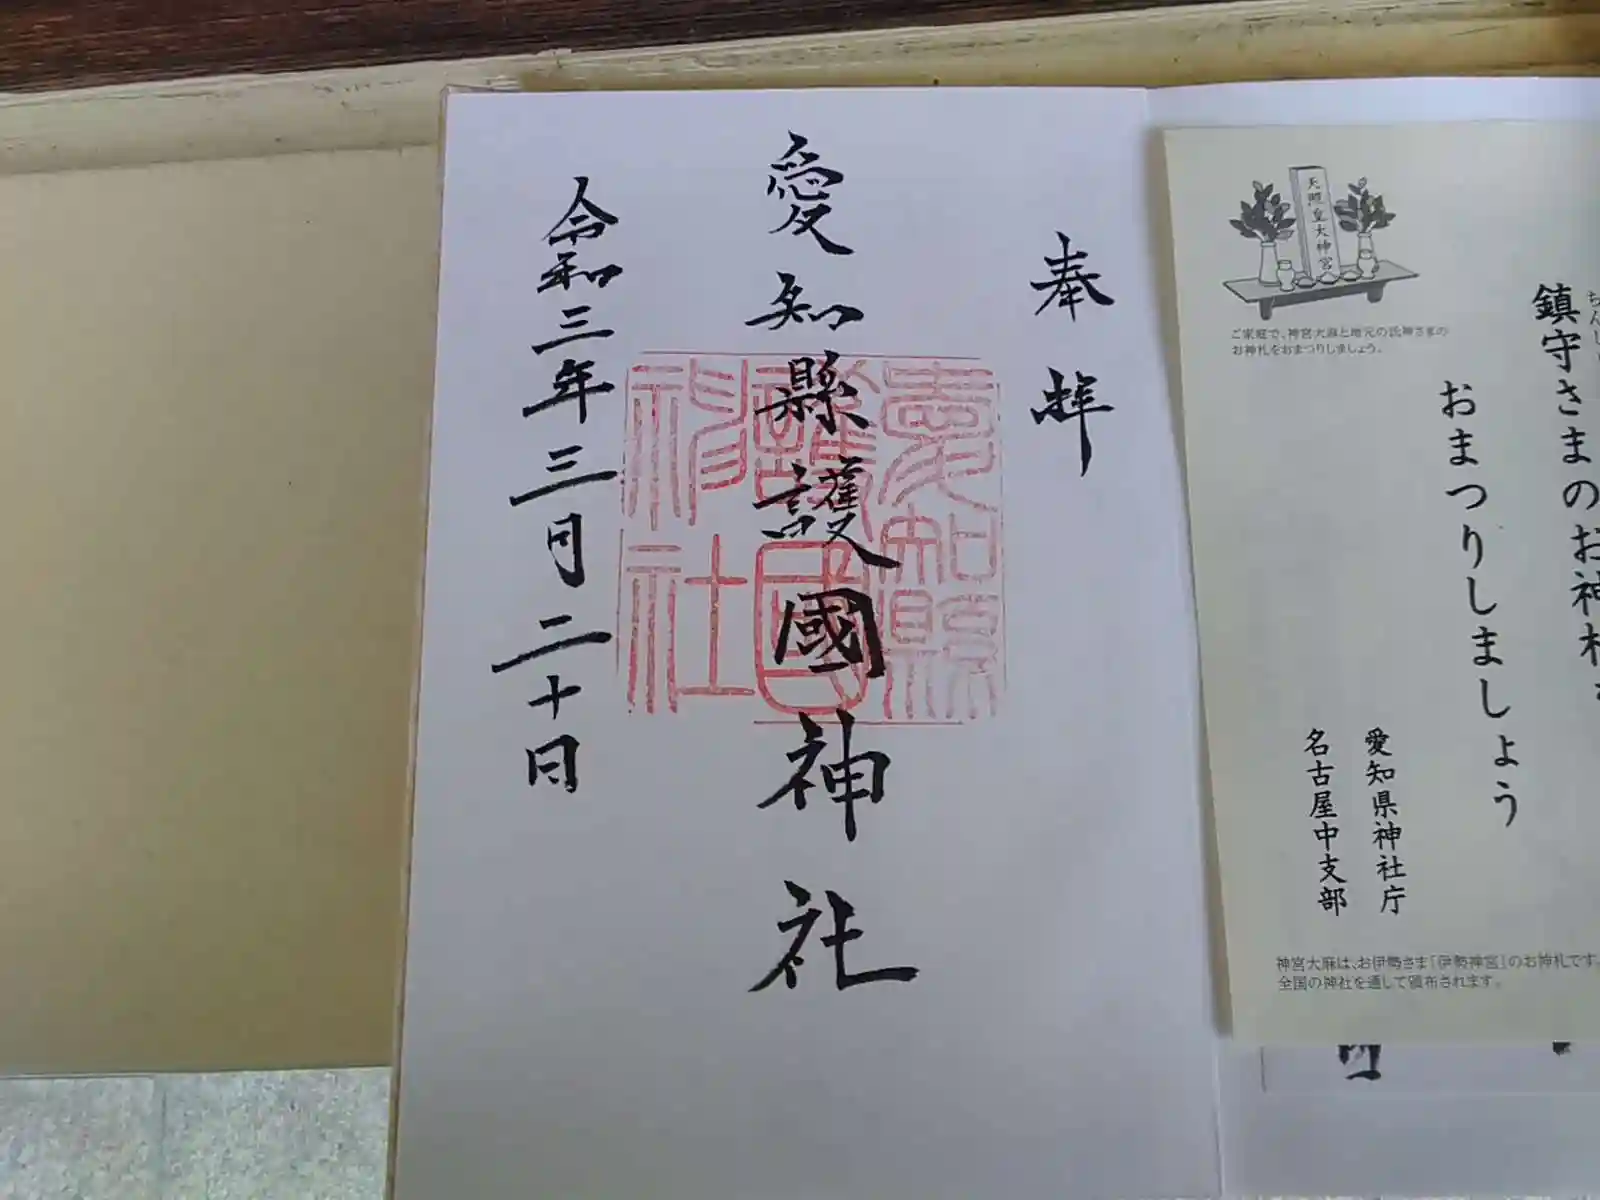 鎮守さまのお神札
おまつりしましょう
愛知県神社庁
名古屋中支部
天照皇大神宮
ご家庭で、神宮大麻と地元の氏神さまの
お神札をおまつりしましょう。
神宮大麻は、お伊勢さま「伊勢神宮」のお神札です。
全国の神社を通して頒布されます。
奉拝
愛知縣護國神社
愛知縣
護國
神社
令和三年三月二十日